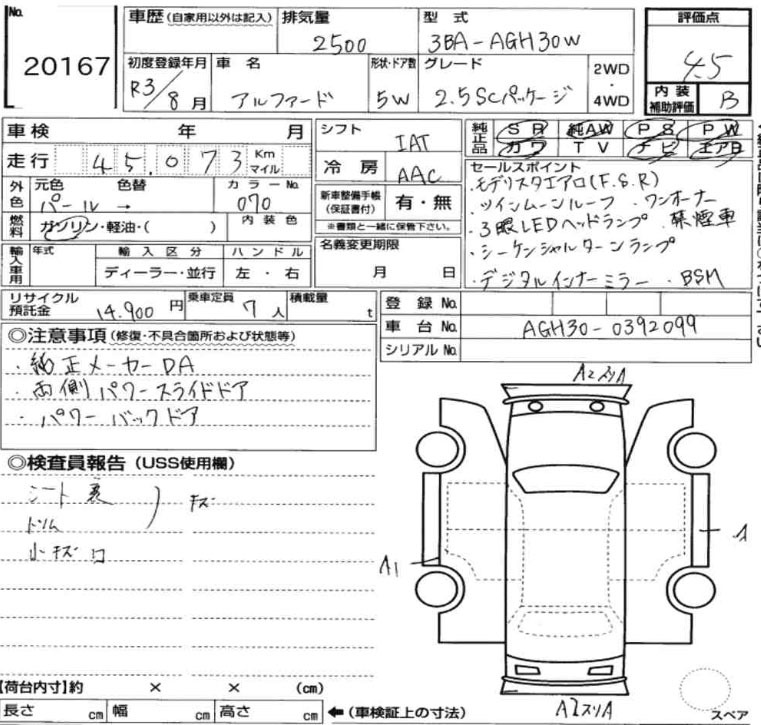 No. 20167
車歴 (自家用以外は記入)
排気量 2500
型式 3BA-AGH30W
評価点 4.5
初度登録年月 R3/8月
車名 アルファード
形状・ドア数 5W
グレード 2.5SCパッケージ
2WD・4WD
内装補助評価 B
車検 年 月
シフト IAT
純正品 SR 純AW PS PW
カワ TV ナビ エアB
走行 45,073 Km マイル
冷房 AAC
セールスポイント
・モデリスタエアロ(F.S.R)
・ツインムーンルーフ ・ワンオーナー
・3眼LEDヘッドランプ 禁煙車
・シーケンシャルターンランプ
・デジタルインナーミラー ・BSM
外色 元色 色替 パール→
カラーNo. 070
新車整備手帳(保証書付) 有・無
※書類と一緒に保管下さい。
燃料 ガソリン・軽油・( )
内装色
名義変更期限 月 日
輸入車用 年式 輸入区分 ハンドル
ディーラー・並行 左・右
リサイクル預託金 14,900円
乗車定員 7人
積載量 t
登録No.
車台No. AGH30-0392099
シリアルNo.
◎注意事項(修復・不具合箇所および状態等)
・純正メーカーDA
・両側パワースライドドア
・パワーバックドア
◎検査員報告(USS使用欄)
シート裏
トリム
キズ
小キズ
A2スリA
A1
A
A2スリA
【荷台内寸】約 × × (cm)
長さ cm 幅 cm 高さ cm
←(車検証上の寸法)
スペア